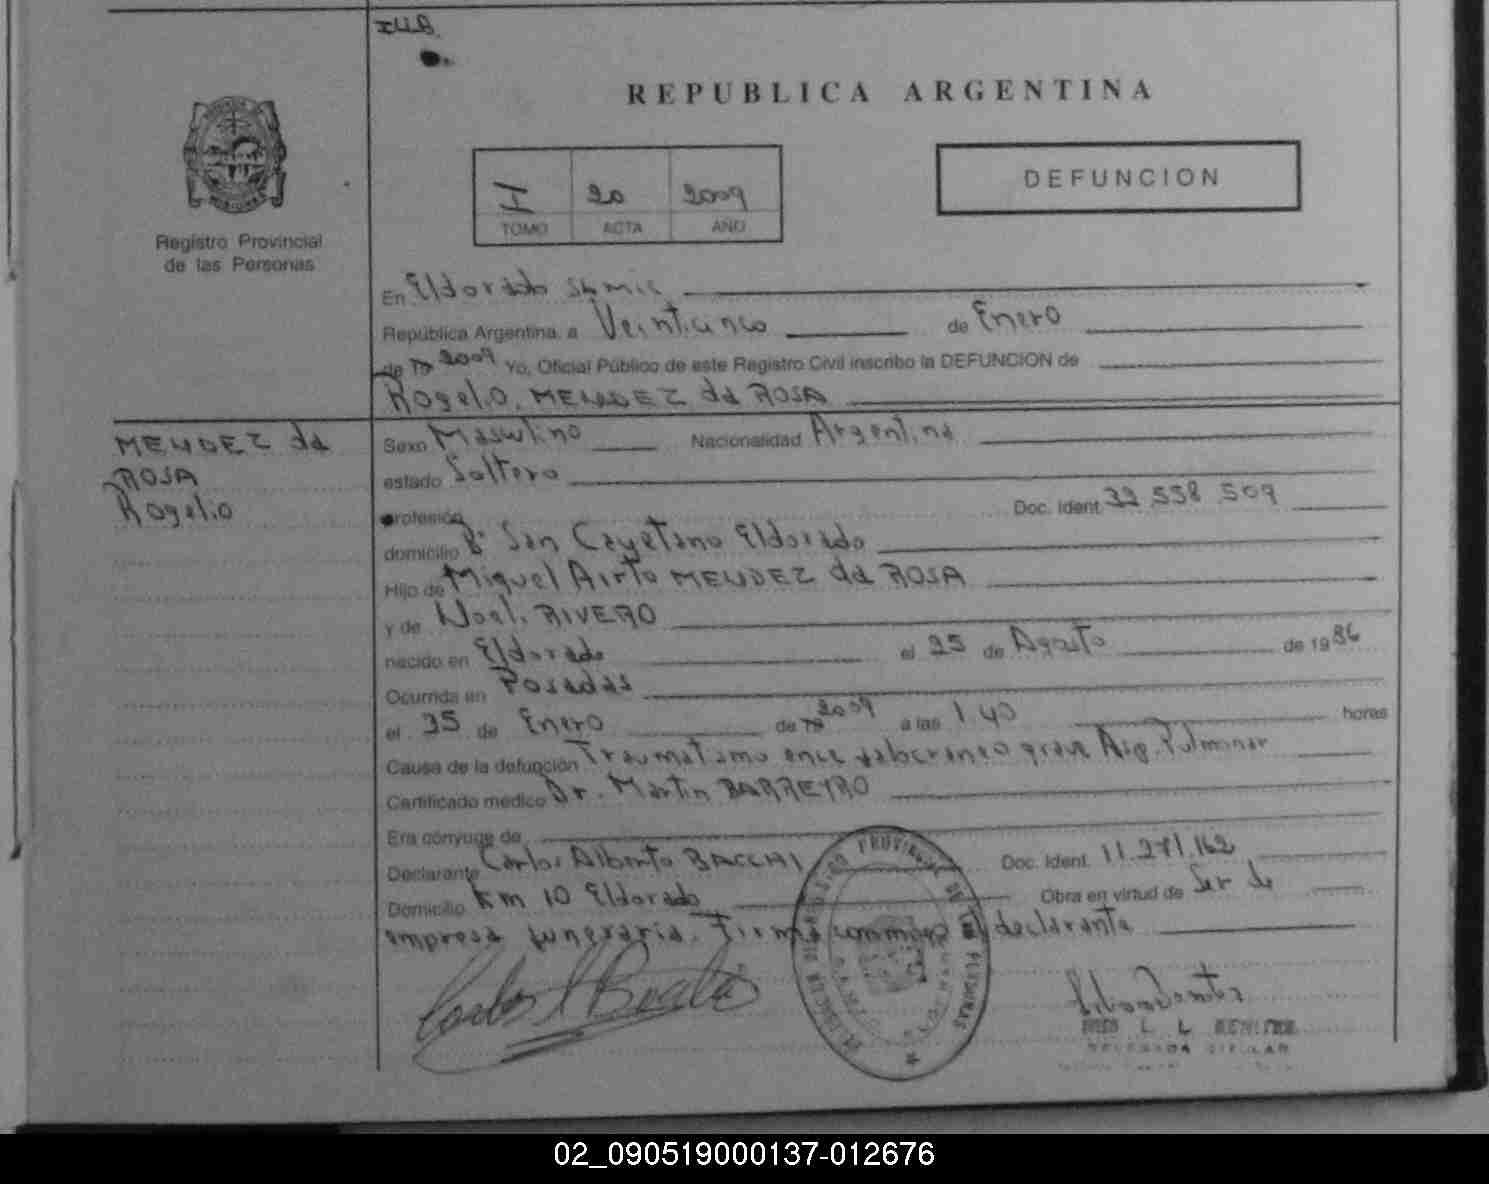 REPUBLICA ARGENTINA
I 20 2009
TOMO ACTA AÑO
DEFUNCION
Registro Provincial
de las Personas
En Eldorado
República Argentina, a Veinticinco de Enero
de 2009 Yo, Oficial Público de este Registro Civil inscribo la DEFUNCION de
Rogelio MENDEZ da ROSA
MENDEZ da
ROSA
Rogelio
Sexo Masculino Nacionalidad Argentina
estado Soltero
profesión Doc. Ident. 558 509
domicilio Bº San Cayetano Eldorado
Hijo de Miguel Airto MENDEZ da ROSA
y de Noel. RIVERO
nacido en Eldorado el 25 de Agosto de 1986
Ocurrida en Posadas
el 25 de Enero de 2009 a las 1.40 horas
Causa de la defunción Traumatismo grave Asp. Pulmonar
Certificado médico Dr. Martin BARREYRO
Era cónyuge de
Declarante Carlos Alberto BACCHI Doc. Ident. 11.271.162
Domicilio Km 10 Eldorado Obra en virtud de Ser de
empresa funeraria. Firma conmigo el declarante
02_090519000137-012676